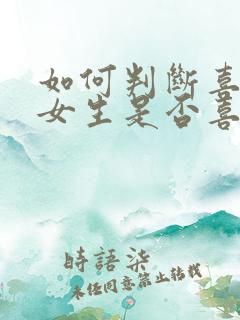 如何判斷喜
女生是否喜
時語柒
未经同意禁止转载